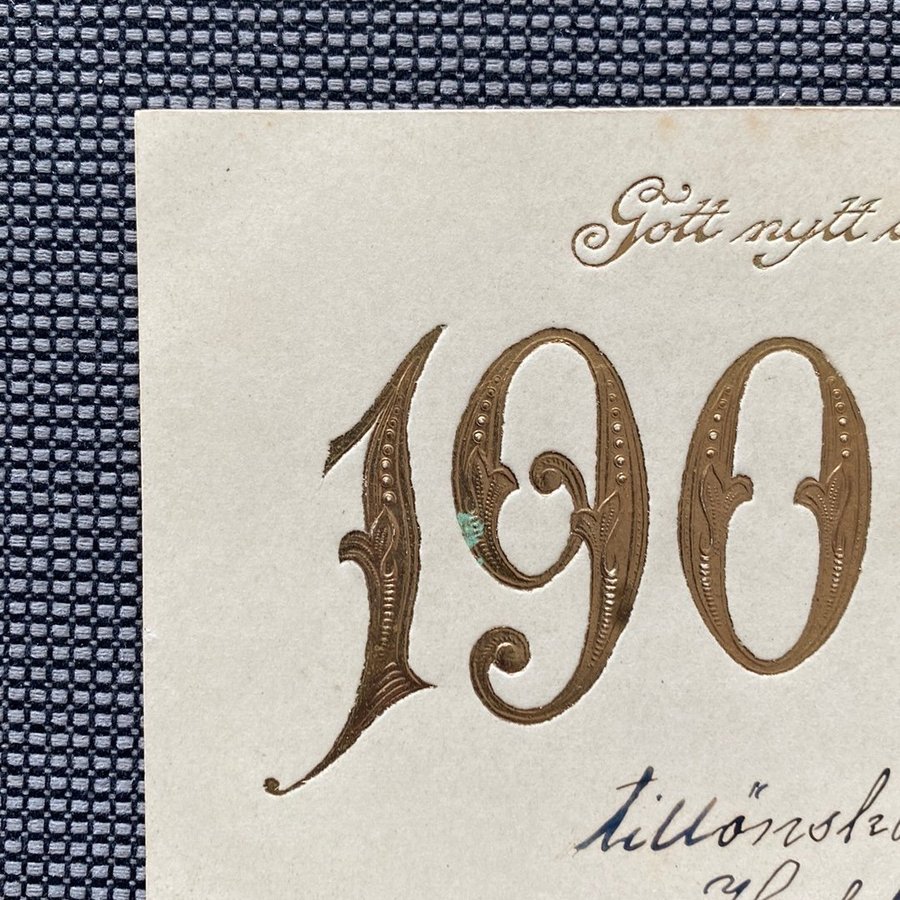 Gott nytt
190
tillönsk